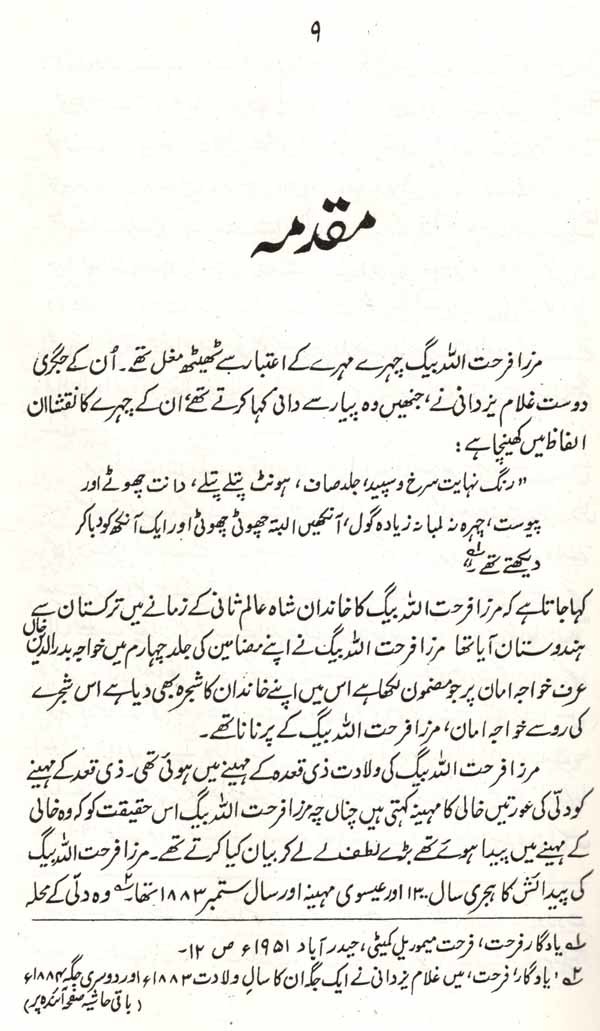 ۹
مقدمہ
مرزا فرحت اللہ بیگ چہرے مہرے کے اعتبار سے ٹھیٹھ مغل تھے۔ اُن کے جگری
دوست غلام یزدانی نے، جنھیں وہ پیار سے دانی کہا کرتے تھے، ان کے چہرے کا نقشا ان
الفاظ میں کھینچا ہے:
"رنگ نہایت سرخ و سپید، جلد صاف، ہونٹ پتلے پتلے، دانت چھوٹے اور
پیوست، چہرہ نہ لمبا نہ زیادہ گول، آنکھیں البتہ چھوٹی چھوٹی اور ایک آنکھ کو دبا کر
دیکھتے تھے۔"۱؎
کہا جاتا ہے کہ مرزا فرحت اللہ بیگ کا خاندان شاہ عالم ثانی کے زمانے میں ترکستان سے
ہندوستان آیا تھا مرزا فرحت اللہ بیگ نے اپنے مضامین کی جلد چہارم میں خواجہ بدرالدین خاں
عرف خواجہ امان پر جو مضمون لکھا ہے اس میں اپنے خاندان کا شجرہ بھی دیا ہے اس شجرے
کی رو سے خواجہ امان، مرزا فرحت اللہ بیگ کے پرنانا تھے۔
مرزا فرحت اللہ بیگ کی ولادت ذی قعدہ کے مہینے میں ہوئی تھی۔ ذی قعد کے مہینے
کو دلّی کی عورتیں خالی کا مہینہ کہتی ہیں چناں چہ مرزا فرحت اللہ بیگ اس حقیقت کو کہ وہ خالی
کے مہینے میں پیدا ہوئے تھے بڑے لطف لے لے کر بیان کیا کرتے تھے۔ مرزا فرحت اللہ بیگ
کی پیدائش کا ہجری سال ۱۳۰۰ اور عیسوی مہینہ اور سال ستمبر ۱۸۸۳ تھا۔۲؎ وہ دلّی کے محلہ
۱؎ یادگار فرحت، فرحت میموریل کمیٹی، حیدرآباد ۱۹۵۱ء ص ۱۲۔
۲؎ 'یادگار فرحت' میں غلام یزدانی نے ایک جگہ ان کا سالِ ولادت ۱۸۸۳ء اور دوسری جگہ ۱۸۸۴ء
(باقی حاشیہ صفحہ آئندہ پر)